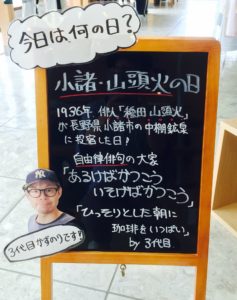 今日は何の日？
小諸・山頭火の日
1936年 俳人「種田 山頭火」
が長野県小諸市の中棚鉱泉
に投宿した日！
自由律俳句の大家
「あるけばかつこう
いそげばかつこう」
「ひっそりとした朝に
珈琲をいっぱい」
by 3代目
3代目かずのりです！